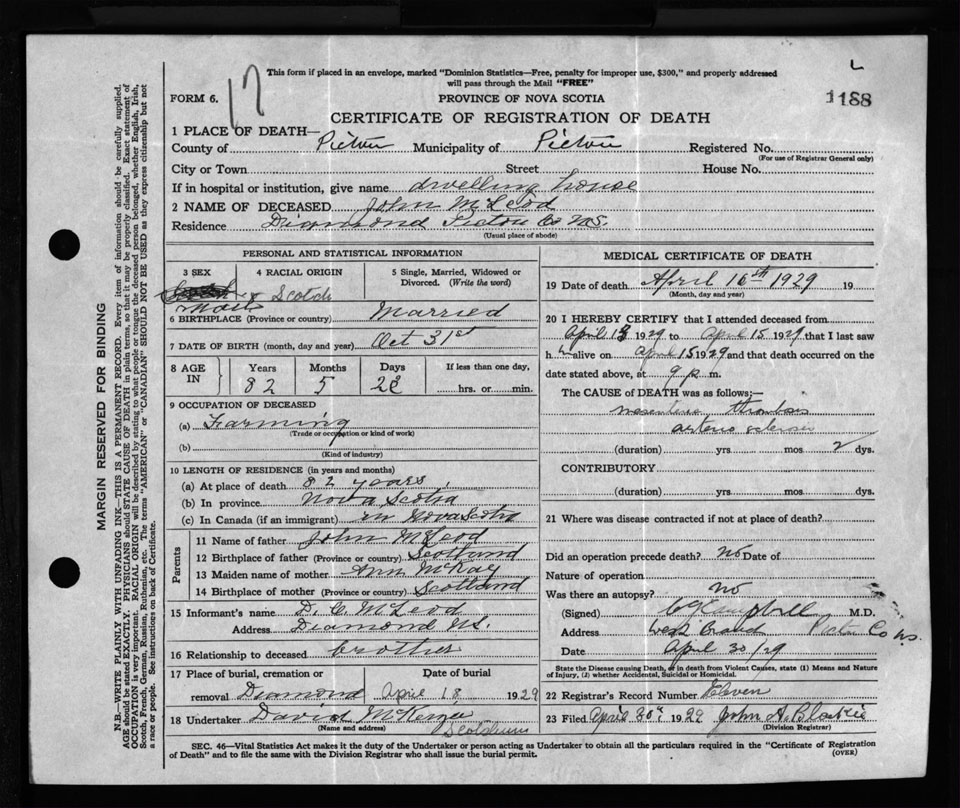 This form if placed in an envelope, marked "Dominion Statistics—Free, penalty for improper use, $300," and properly addressed
will pass through the Mail "FREE"
L
1188
17
FORM 6.
PROVINCE OF NOVA SCOTIA
CERTIFICATE OF REGISTRATION OF DEATH
1 PLACE OF DEATH—
County of Pictou Municipality of Pictou Registered No.
(For use of Registrar General only)
City or Town Street House No.
If in hospital or institution, give name dwelling house
2 NAME OF DECEASED John McLeod
Residence Diamond Pictou Co N.S.
(Usual place of abode)
PERSONAL AND STATISTICAL INFORMATION
3 SEX 4 RACIAL ORIGIN 5 Single, Married, Widowed or Divorced. (Write the word)
Scotch
Male Married
6 BIRTHPLACE (Province or country)
7 DATE OF BIRTH (month, day and year) Oct 31st
8 AGE IN Years Months Days If less than one day,
82 5 hrs. or min.
9 OCCUPATION OF DECEASED
(a) Farming
(Trade or occupation or kind of work)
(b)
(Kind of industry)
10 LENGTH OF RESIDENCE (in years and months)
(a) At place of death 82 years
(b) In province Nova Scotia
(c) In Canada (if an immigrant) in Nova Scotia
Parents
11 Name of father John McLeod
12 Birthplace of father (Province or country) Scotland
13 Maiden name of mother Ann McKay
14 Birthplace of mother (Province or country) Scotland
15 Informant's name D. C. McLeod
Address Diamond N.S.
16 Relationship to deceased brother
17 Place of burial, cremation or
removal Diamond April 18 1929
18 Undertaker David McKenzie
(Name and address)
MEDICAL CERTIFICATE OF DEATH
19 Date of death April 16th 1929 19
(Month, day and year)
20 I HEREBY CERTIFY that I attended deceased from
April 13 1929 to April 15 1929 that I last saw
h alive on April 15 1929 and that death occurred on
date stated above, at 9 p. m.
The CAUSE of DEATH was as follows:—
mesenteric thrombosis
arterio sclerosis
(duration) yrs mos 2 dys.
CONTRIBUTORY
(duration) yrs. mos. dys.
21 Where was disease contracted if not at place of death?
Did an operation precede death? no Date of
Nature of operation
Was there an autopsy? no
(Signed) Campbell M.D.
Address West Branch Pictou Co N.S.
Date April 30/29
State the Disease causing Death, or in death from Violent Causes, state (1) Means and Nature
of Injury, (2) whether Accidental, Suicidal or Homicidal.
22 Registrar's Record Number Eleven
23 Filed April 30th 1929 John A. Blaikie
(Division Registrar)
SEC. 46—Vital Statistics Act makes it the duty of the Undertaker or person acting as Undertaker to obtain all the particulars required in the "Certificate of Registration
of Death" and to file the same with the Division Registrar who shall issue the burial permit.
(OVER)
MARGIN RESERVED FOR BINDING
N.B.—WRITE PLAINLY WITH UNFADING INK—THIS IS A PERMANENT RECORD. Every item of information should be carefully supplied.
AGE should be stated EXACTLY. PHYSICIANS should STATE CAUSE OF DEATH in plain terms, so that it may be properly classified. Exact statement of
OCCUPATION is very important. RACIAL ORIGIN will be described by stating to what people or tongue the deceased person belonged, whether English, Irish,
Scotch, French, German, Russian, Ruthenian, etc. The terms "AMERICAN" or "CANADIAN" SHOULD NOT BE USED as they express citizenship but not
a race or people. See instructions on back of Certificate.